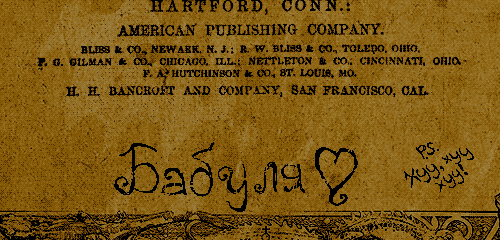 HARTFORD, CONN.:
AMERICAN PUBLISHING COMPANY.
BLISS & CO., NEWARK, N. J.; R. W. BLISS & CO., TOLEDO, OHIO.
F. G. GILMAN & CO., CHICAGO, ILL.; NETTLETON & CO., CINCINNATI, OHIO.
F. A. HUTCHINSON & CO., ST. LOUIS, MO.
H. H. BANCROFT AND COMPANY, SAN FRANCISCO, CAL.
Бабуля ♡
P.S.
Хуу, хуу
хуу!